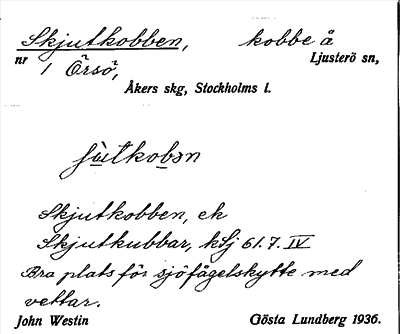 Skjutkobben, kobbe å
nr 1 Örsö, Ljusterö sn,
Åkers skg, Stockholms l.
Skjutkobben, ek
Skjutkubbar, kSj 61.7. IV
Bra plats för sjöfågelskytte med
vettar.
John Westin Gösta Lundberg 1936.